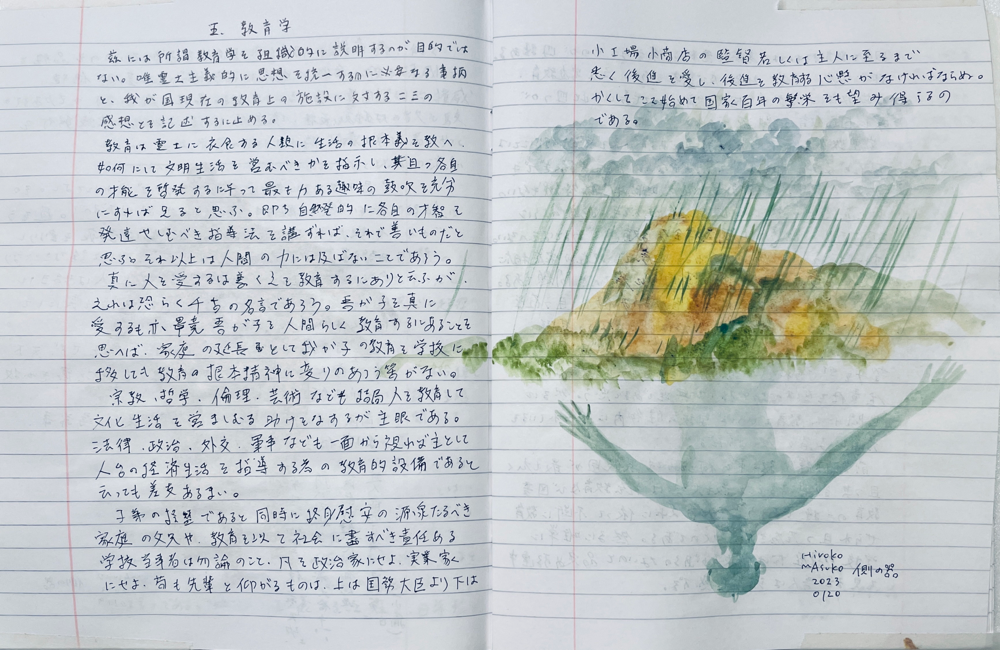 五、教育学
茲には所謂教育学を組織的に説明するのが目的では
ない。唯霊土主義的に思想を統一するに必要なる事柄
と、我が国現在の教育上の施設に対する二三の
感想とを記述するに止める。
教育は霊土に衣食する人類に生活の根本義を教へ、
如何にして文明生活を営むべきかを指示し、其且つ各自
の才能を啓発するに半って最も力ある趣味の鼓吹を充分
にすれば足ると思ふ。即ち自然発的に各自の才智を
発達せしむべき指導法を講ずれば、それで善いものだと
思ふ。それ以上は人間の力には及ばないことであらう。
真に人を愛するは善くえて教育するにありと云ふが、
えれは恐らく千古の名言であらう。吾が子を真に
愛するも亦畢竟吾が子を人間らしく教育するにあることを
思へば、家庭の延長としてわが子の教育を学校に
移しても教育の根本精神に変りのあらう筈がない。
宗教、哲学、倫理、芸術なども結局人を教育して
文化生活を営ましむる助けをなするが主眼である。
法律、政治、外交、軍事なども一面から視れば主として
人台の経済生活を指導する為の教育的設備であると
云っても差支あるまい。
子弟のであると同時に終身慰安の源泉たるべき
家庭の父兄や、教育を以て社会に尽すべき責任ある
学校当事者は勿論のこと、凡そ政治家にせよ、実業家
にせよ、苟も先輩と仰がるものは、上は国務大臣より下は
小工場小商店の監督若しくは主人に至るまで
悉く後進を愛し、後進を教育する心懸がなければならぬ。
かくしてこそ始めて国家百年の繁栄をも望み得らるの
である。
Hiroko
mAsuko 側の器。
2023
0120